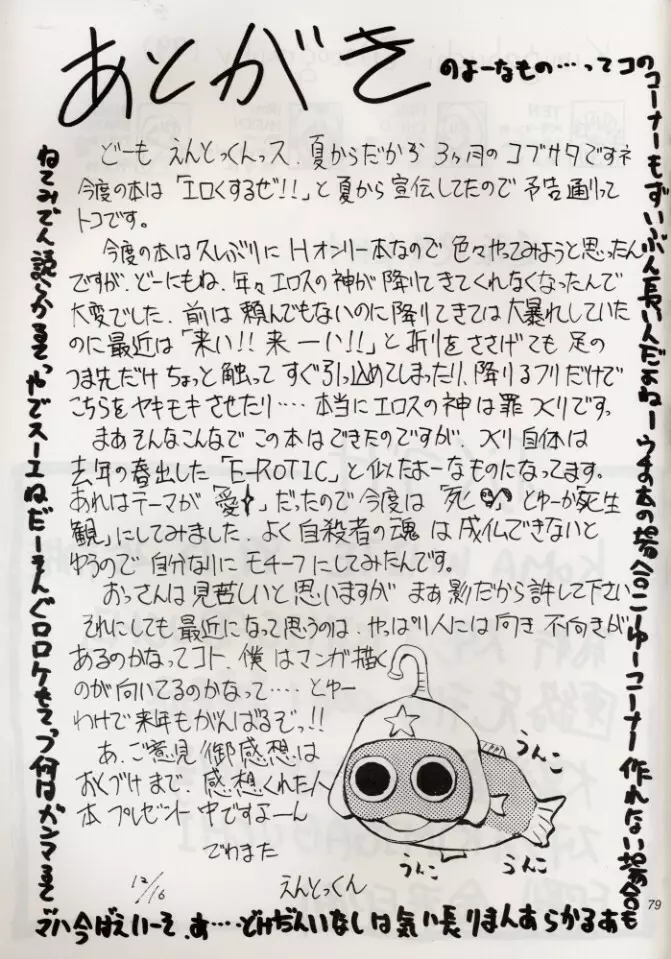 あとがき
のよーなもの…ってコのコーナーもずいぶん長いんだよねーウチの本の場合こーゆーコーナー作れない場合も
あるからあんまり長い気はしないんだけど…。あ、そーいえば今ハマ
ってるマンガは何つってもケロロぐんそーだねエースでやってるぶらぶら読んでみてね
どーも えんとっくんっス. 夏からだから 3ヶ月のゴブサタですネ
今度の本は「エロくするぜ!!」と夏から宣伝してたので予告通りって
トコです。
今度の本は久しぶりにHオンリー本なので色々やってみようと思ったん
ですが、どーにもね、年々エロスの神が降りてきてくれなくなったんで
大変でした. 前は頼んでもないのに降りてきては大暴れしていた
のに最近は「来い!! 来ーい!!」と祈りをささげても足の
つま先だけちょっと触ってすぐ引っ込めてしまったり、降りるフリだけで
こちらをヤキモキさせたり…. 本当にエロスの神は罪つくりです。
まあそんなこんなでこの本はできたのですが、つくり自体は
去年の春出した「E-ROTIC」と似たよーなものになってます。
あれはテーマが「愛」だったので今度は「死」とゆーか「死生
観」にしてみました. よく自殺者の魂は成仏できないと
ゆうので自分なりにモチーフにしてみたんです。
おっさんは見苦しいと思いますがまあ影だから許して下さい
それにしても最近になって思うのは、やっぱり人には向き不向きが
あるのかなってコト. 僕はマンガ描く
のが向いてるのかなって…. とゆー
わけで来年もがんばるぞっ!!
あ、ご意見/御感想は
おくづけまで. 感想くれた人
本プレゼント中ですよーん
でわまた
12/16 えんとっくん
うんこ
うんこ
うんこ
79